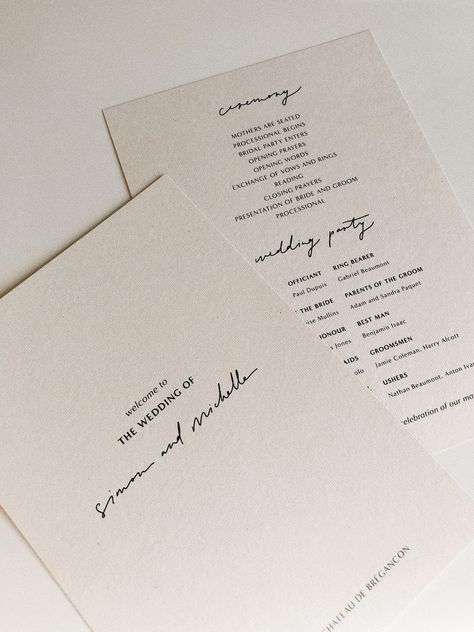 ceremony
MOTHERS ARE SEATED
PROCESSIONAL BEGINS
BRIDAL PARTY ENTERS
OPENING PRAYERS
OPENING WORDS
EXCHANGE OF VOWS AND RINGS
READING
CLOSING PRAYERS
PRESENTATION OF BRIDE AND GROOM
PROCESSIONAL
wedding party
OFFICIANT RING BEARER
Paul Dupuis Gabriel Beaumont
THE BRIDE PARENTS OF THE GROOM
Mullins Adam and Sandra Paquet
BEST MAN
Jones Benjamin Isaac
GROOMSMEN
Jamie Coleman, Harry Alcott
USHERS
Nathan Beaumont, Anton
celebration of our
welcome to
THE WEDDING OF
simon and michelle
CHATEAU DE BRÉGANCON